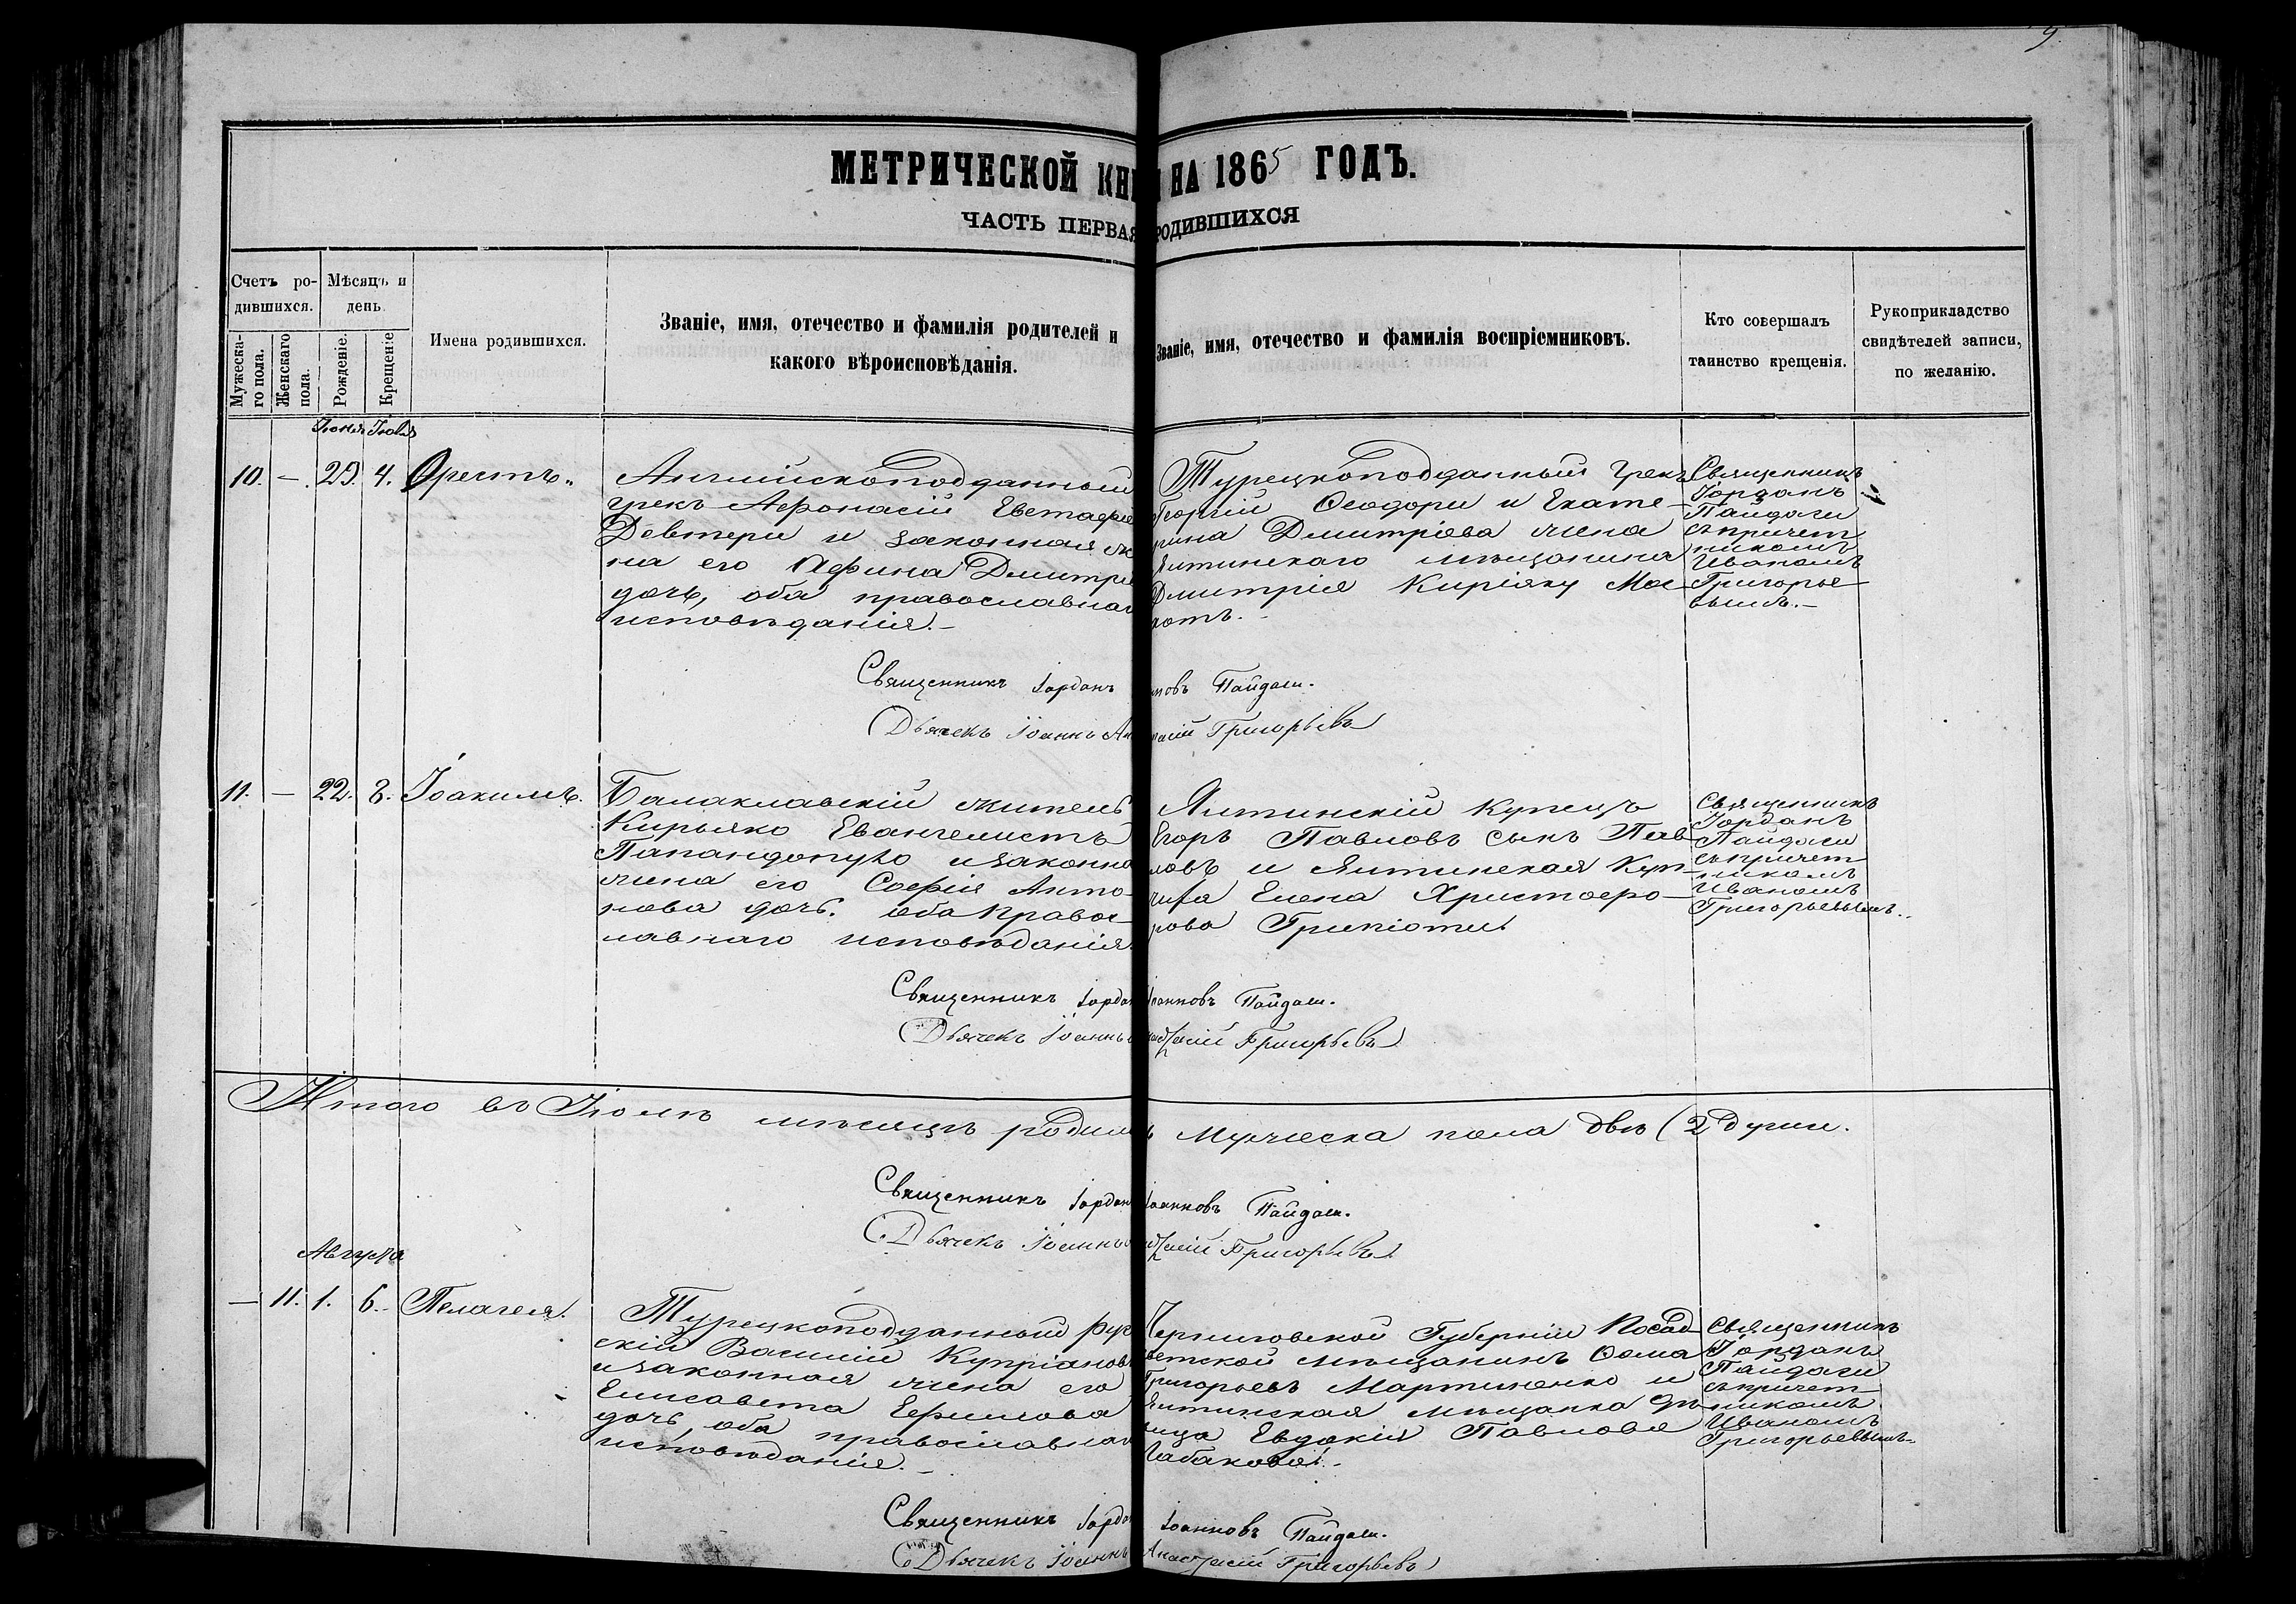 9
МЕТРИЧЕСКОЙ КНИ НА 1865 ГОДЪ.
ЧАСТЬ ПЕРВАЯ РОДИВШИХСЯ
Счетъ ро-
дившихся.
Мужеска-
го пола.
Женскаго
пола.
Мѣсяцъ и
день.
Рожденіе.
Крещеніе
Имена родившихся.
Званіе, имя, отечество и фамилія родителей и
какого вѣроисповѣданія.
Званіе, имя, отечество и фамилія воспріемниковъ.
Кто совершалъ
таинство крещенія.
Рукоприкладство
свидѣтелей записи,
по желанію.
Іюня Іюля
10. — 29. 4. Орестъ.
Англійскоподданный
грекъ Афонасій Евстафіе
Девтери и законная ж
на его Афина Дмитріе
дочь, оба православнаг
исповѣданія.—
Турецкоподданный грекъ
Георгій Ѳеодори и Екате-
рина Дмитріева жена
Ялтинскаго мѣщанина
Дмитрія Киріяку Мос-
хотъ.-
Священникъ
Іорданъ
Пайдаси
съ причет
никомъ
Иваномъ
Григорье-
вымъ.—
Священникъ Іорданъ новъ Пайдаси.
Дьячекъ Іоаннъ Ан асій Григорьевъ
11. — 22. 8. Іоакимъ.
Балаклавскій житель
Кирьяко Евангелистъ
Папандопуло и законна
жена его Софія Анто-
нова дочь. оба правос-
лавнаго исповѣданія.
Ялтинскій купецъ
Егоръ Павловъ сынъ Пав-
ловъ и Ялтинская Куп-
чиха Елена Христофо-
рова Грипіоти
Священникъ
Іорданъ
Пайдаси
съ причет
никомъ
Иваномъ
Григорьевымъ..
Священникъ Іордан Іоанновъ Пайдаси.
Дьячекъ Іоаннъ Григорьевъ
Итого въ Іюлѣ мѣсяцѣ родил ь Мужеска пола двѣ (2 души.
Священникъ Іордан Іоанновъ Пайдаси.
Дьячекъ Іоаннъ Григорьевъ
Августа
— 11. 1. 6. Пелагея.
Турецкоподданный
скій Василій Купріановъ
и законная жена его
Елисавета Ефимова
дочь, оба православнаг
исповѣданія.—
Черниговской Губерніи Посад-
ветской мѣщанинъ Ѳома
Григорьевъ Мартиненко и
Ялтинская мѣщанка дѣ-
вица Евдокія Павлова
Чабакова.-
Священникъ
Іорданъ
Пайдаси
съ причет-
никомъ
Иваномъ
Григорьевымъ-
Священникъ Іордан Іоанновъ Пайдаси.
Дьячекъ Іоаннъ Анастасій Григорьевъ